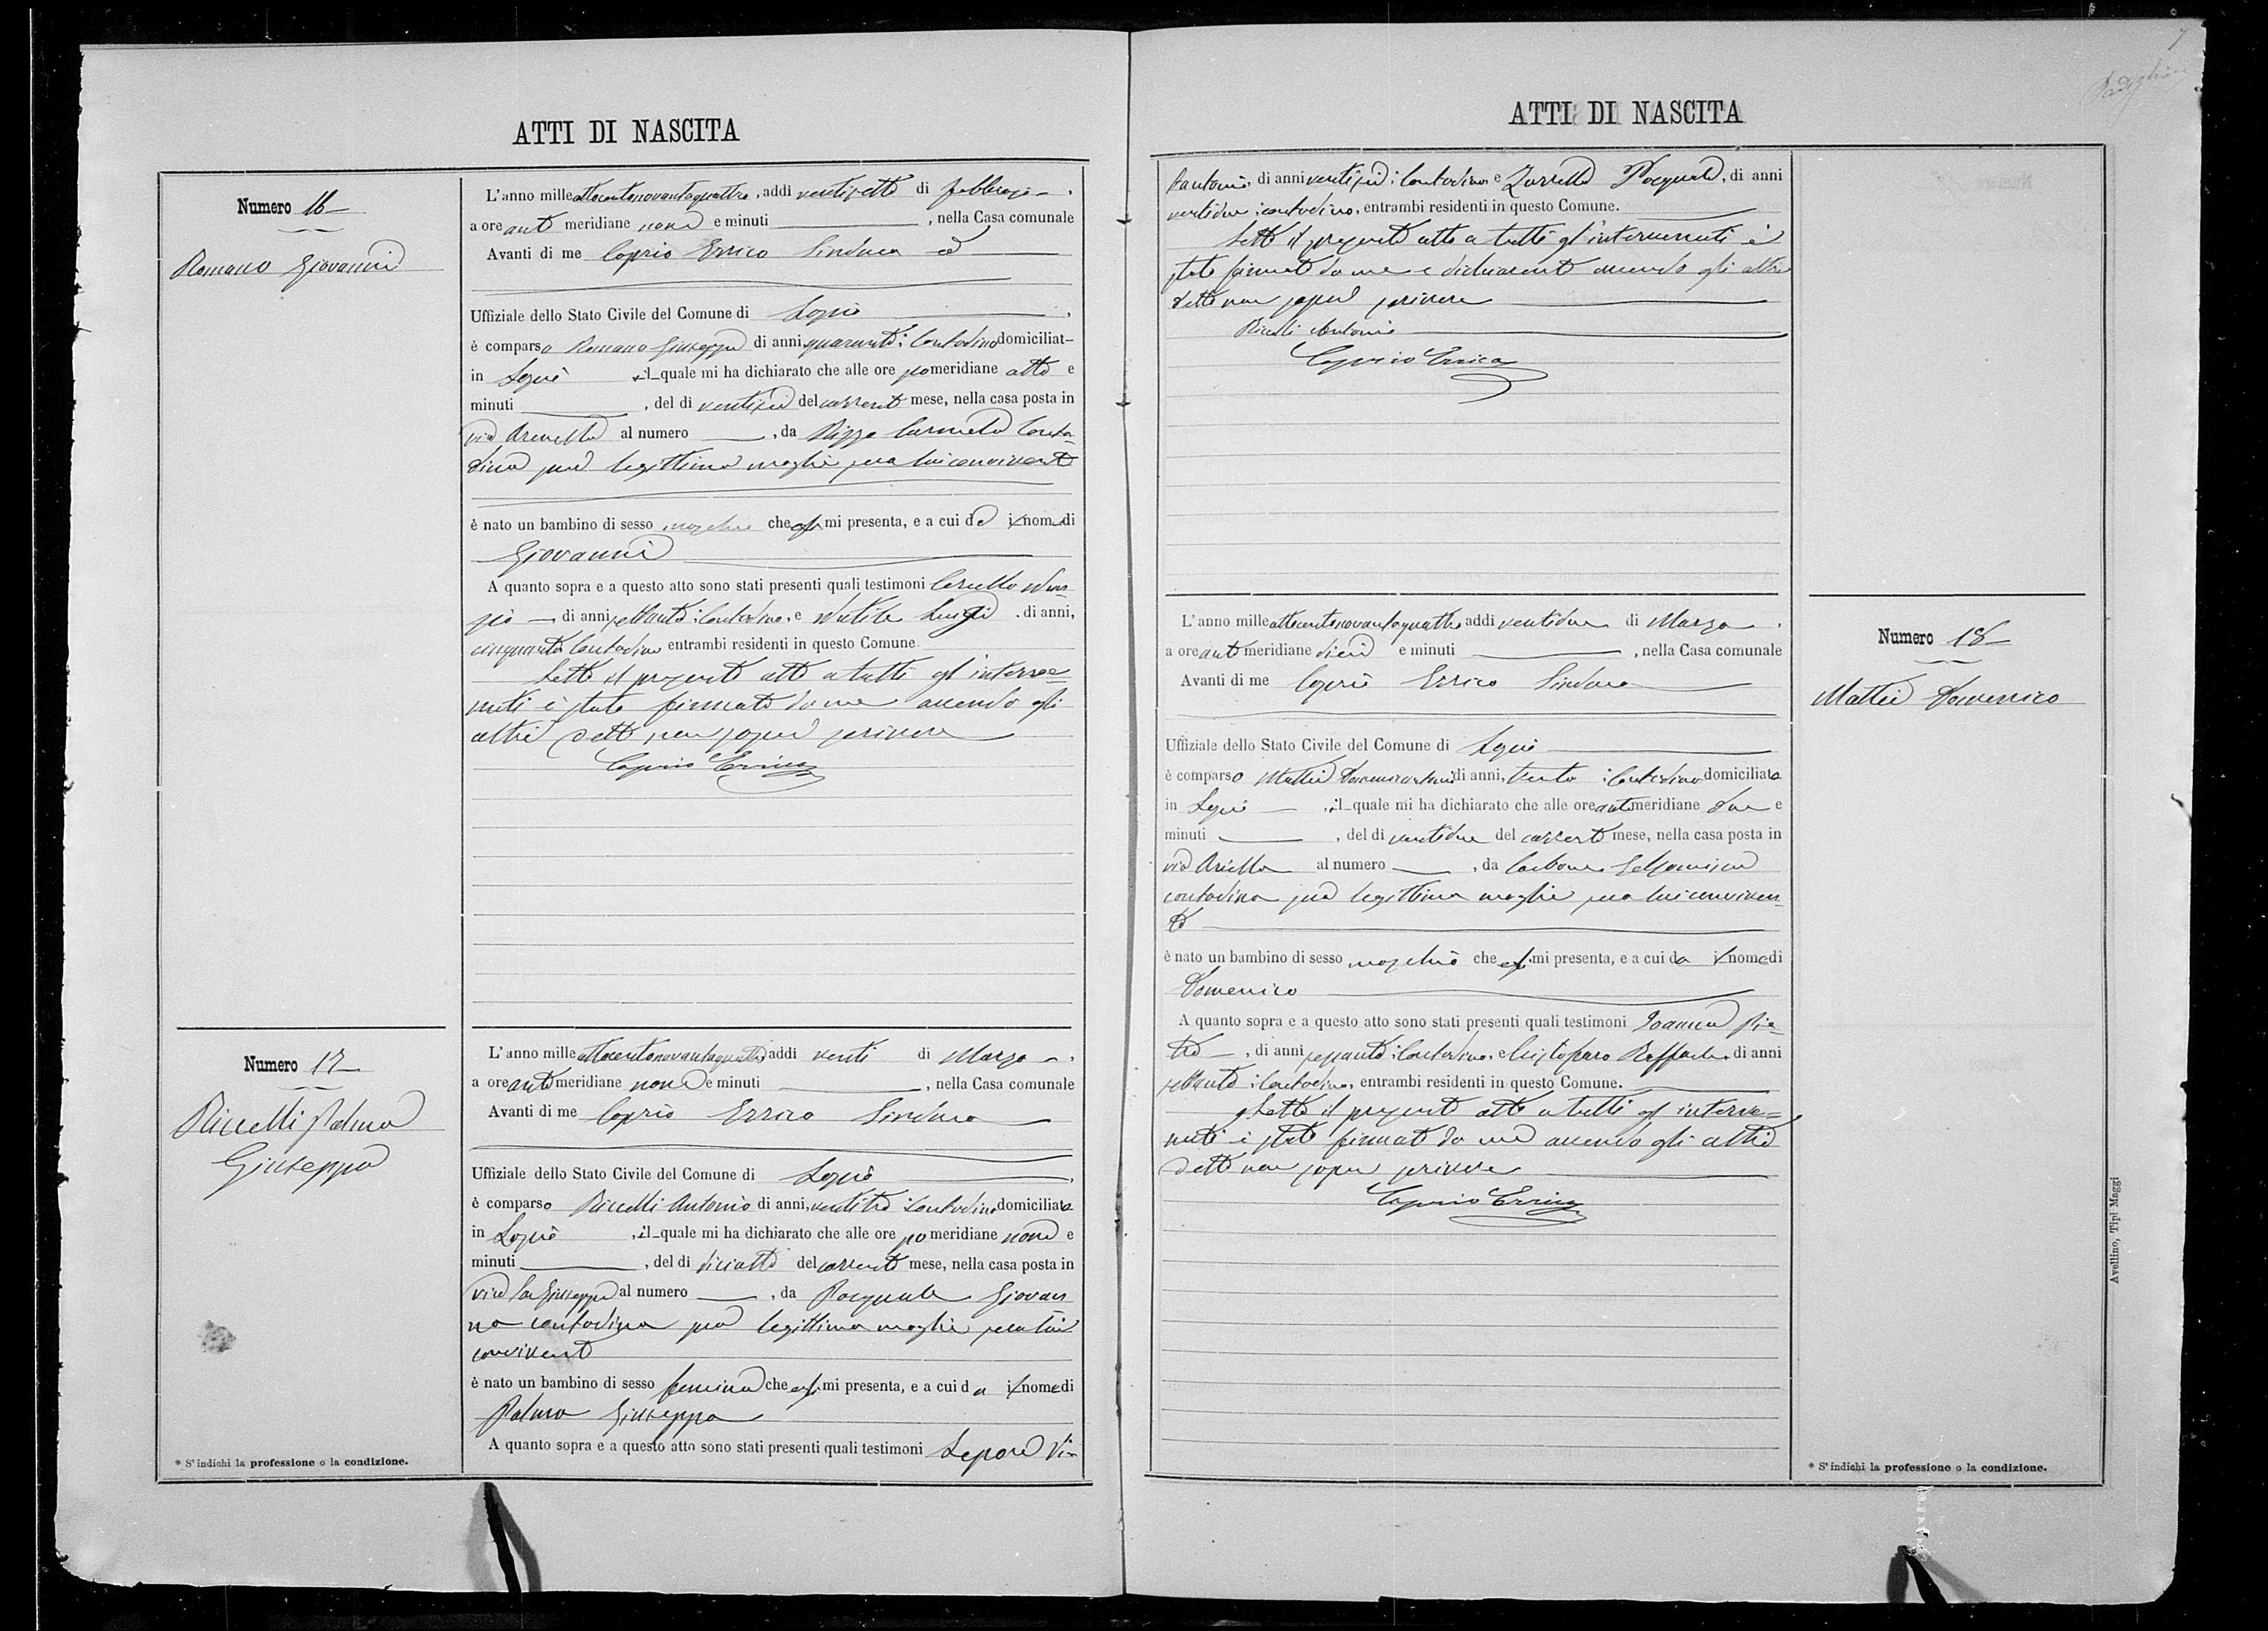 ATTI DI NASCITA
Numero 16
Romano Giovanni
L'anno milleottocentonovantaquattro, addi ventisette di febbraio,
a ore anti meridiane nove e minuti , nella Casa comunale
Avanti di me Caprio Errico Sindaco ed
Uffiziale dello Stato Civile del Comune di Lapio
è comparso Romano Giuseppe di anni quaranta: Contadino domiciliat
in Lapio il quale mi ha dichiarato che alle ore pomeridiane otto e
minuti , del di ventisei del corrente mese, nella casa posta in
via Arenella al numero , da Rizzo Carmela Conta-
dina sua legittima moglie seco lui convivente
è nato un bambino di sesso maschile che egli mi presenta, e a cui da il nome di
Giovanni
A quanto sopra e a questo atto sono stati presenti quali testimoni
di anni settanta: Contadino, e Luigi . di anni,
cinquanta Contadino entrambi residenti in questo Comune.
Letto il presente atto a tutti gl'interve=
nuti è stato firmato da me avendo gli
altri detto non saper scrivere
Caprio Errico
Numero 17
Riccelli Palma
Giuseppa
L'anno milleottocentonovantaquattro addi venti di Marzo,
a ore antimeridiane nove e minuti , nella Casa comunale
Avanti di me Caprio Errico Sindaco
Uffiziale dello Stato Civile del Comune di Lapio
è comparso Riccelli Antonio di anni, ventitre: Contadino domiciliato
in Lapio , il quale mi ha dichiarato che alle ore pomeridiane nove e
minuti , del di diciotto del corrente mese, nella casa posta in
via San Giuseppe al numero , da Pasquale Giovan
na contadina sua legittima moglie seco lui
convivente
è nato un bambino di sesso femina che egli mi presenta, e a cui da il nome di
Palma Giuseppa
A quanto sopra e a questo atto sono stati presenti quali testimoni Lepore Vi-
* S'indichi la professione o la condizione.
7
ATTI DI NASCITA
di anni ventisei: Contadino e Zarrella Pasquale, di anni
ventidue: contadino, entrambi residenti in questo Comune.
Letto il presente atto a tutti gl'intervenuti è
stato firmato da me e dichiarante avendo gli altri
detto non saper scrivere
Riccelli Antonio
Caprio Errico
Numero 18
Mattei Domenico
L'anno milleottocentonovantaquattro addi ventidue di Marzo,
a ore antimeridiane dieci e minuti , nella Casa comunale
Avanti di me Caprio Errico Sindaco
Uffiziale dello Stato Civile del Comune di Lapio
è comparso Mattei di anni, trenta: Contadino domiciliato
in Lapio , il quale mi ha dichiarato che alle ore antimeridiane due e
minuti , del di ventidue del corrente mese, nella casa posta in
via Ariella al numero , da Carbone Gelsomina
contadina sua legittima moglie seco lui conviven
te
è nato un bambino di sesso maschio che egli mi presenta, e a cui da il nome di
Domenico
A quanto sopra e a questo atto sono stati presenti quali testimoni Ioanna Pie-
tro , di anni sessanta: Contadino, e Cristofaro Raffaele di anni
settanta: Contadino, entrambi residenti in questo Comune.
Letto il presente atto a tutti gl'interve=
nuti è stato firmato da me avendo gli altri
detto non saper scrivere
Caprio Errico
* S'indichi la professione o la condizione.
Avellino, Tipi Maggi